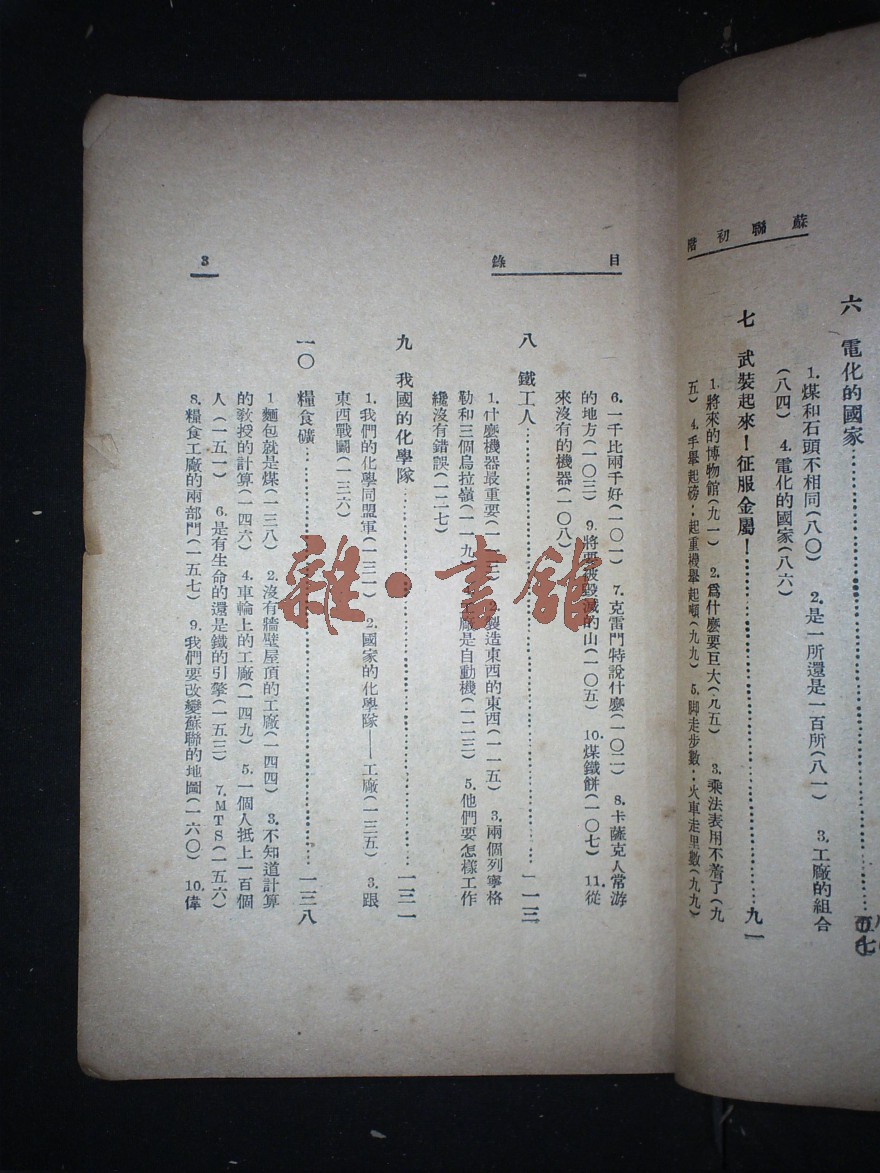 蘇聯初階
六 電化的國家
1.煤和石頭不相同(八〇) 2.是一所還是一百所(八一) 3.工廠的組合
(八四) 4.電化的國家(八六)
七 武裝起來！征服金屬！ 九一
1.將來的博物館(九一) 2.爲什麼要巨大(九五) 3.乘法表用不着了(九
五) 4.手舉起磅：起重機舉起噸(九九) 5.脚走步數：火車走里數(九九)
目錄
6.一千比兩千好(一〇一) 7.克雷門特說什麼(一〇二) 8.卡薩克人常游
的地方(一〇三) 9.將要被毀滅的山(一〇五) 10.煤鐵餅(一〇七) 11.從
來沒有的機器(一〇八)
八 鐵工人 一一三
1.什麼機器最重要(一一三) 2.製造東西的東西(一一五) 3.兩個列寧格
勒和三個烏拉嶺(一一九) 工廠是自動機(一二三) 5.他們要怎樣工作
纔沒有錯誤(一二七)
九 我國的化學隊 一三一
1.我們的化學同盟軍(一三一) 2.國家的化學隊——工廠(一三五) 3.跟
東西戰鬬(一三六)
一〇 糧食礦 一三八
1 麵包就是煤(一三八) 2.沒有牆壁屋頂的工廠(一四四) 3.不知道計算
的敎授的計算(一四六) 4.車輪上的工廠(一四九) 5.一個人抵上一百個
人(一五一) 6.是有生命的還是鐵的引擎(一五三) 7.MTS(一五六)
8.糧食工廠的兩部門(一五七) 9.我們要改變蘇聯的地圖(一六〇) 10.偉
3
雜·書館